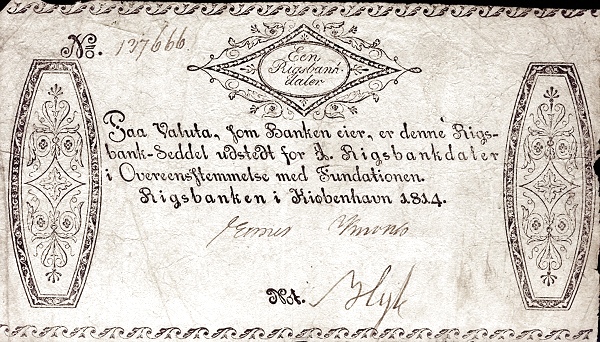 No. 127666.
Een
Rigsbank
daler
Paa Valuta, som Banken eier, er denne Rigs-
bank-Seddel udstedt for 1. Rigsbankdaler
i Overeensstemmelse med Fundationen.
Rigsbanken i Kiobenhavn 1814.
Not.